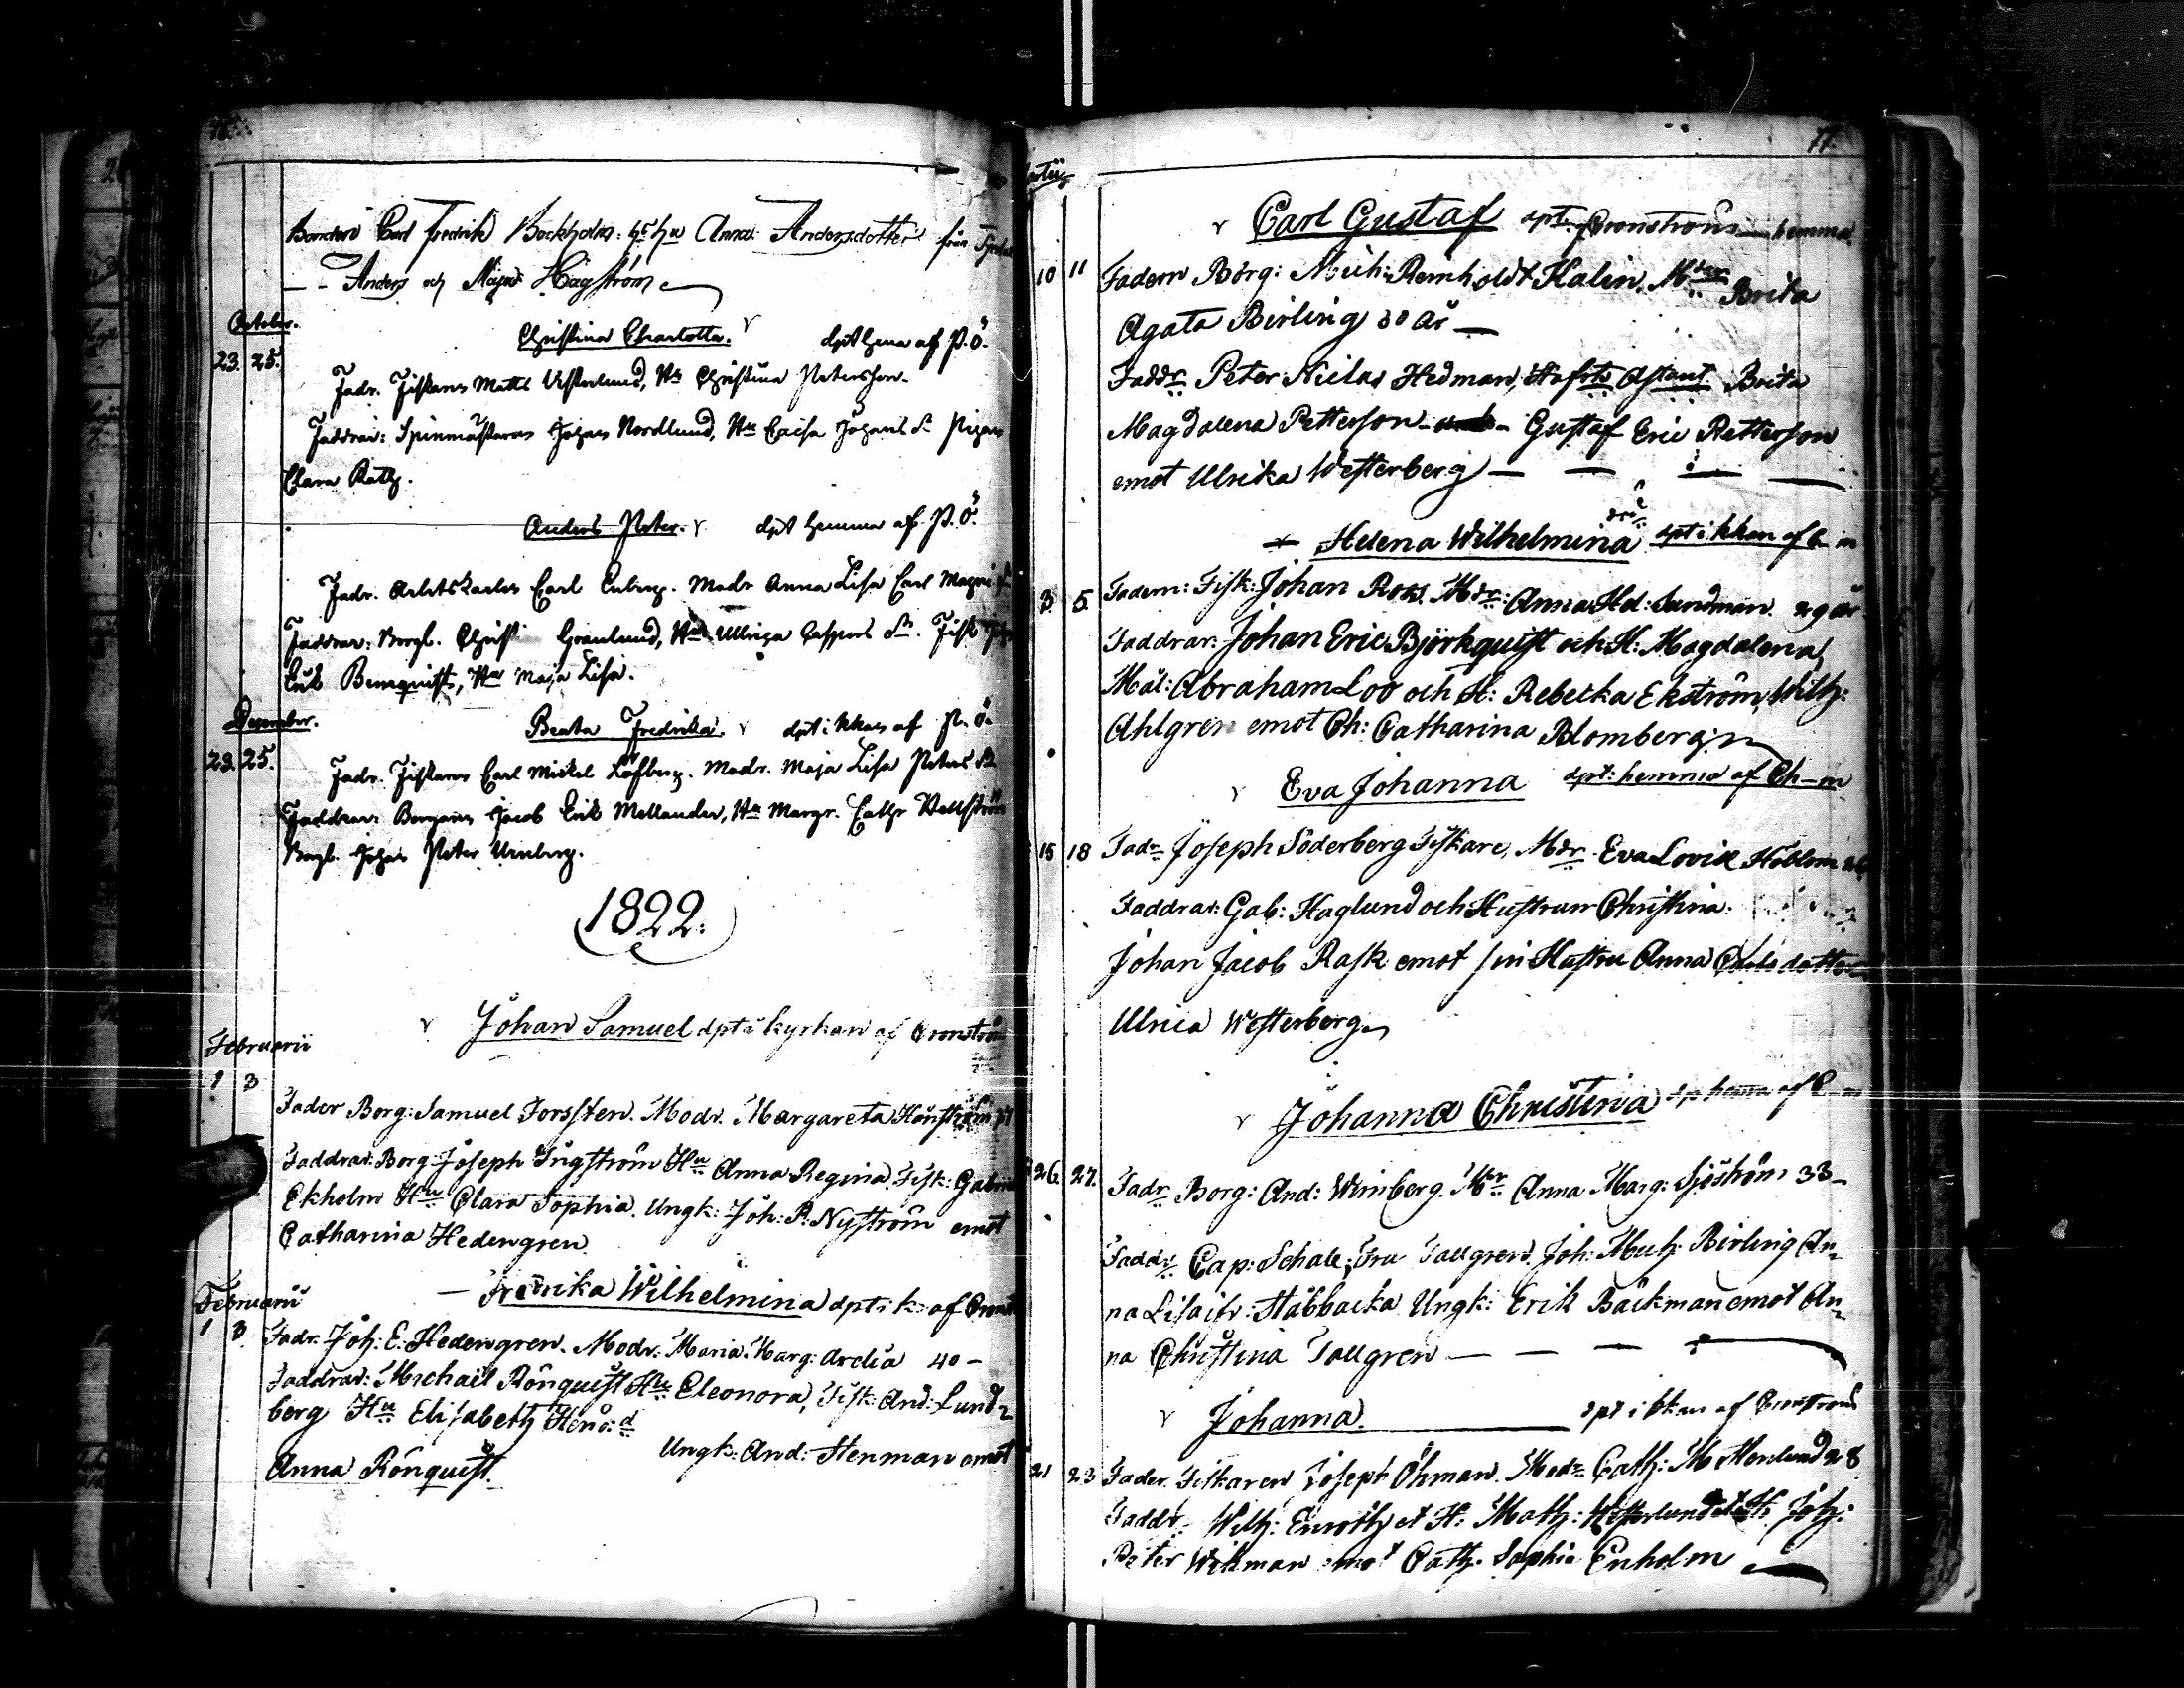 Bonden Carl Fredrik Bockholm: hs hu Anna Andersdotter från
Anders och Maja Hägström
October.
Christina Charlotta. döpt hema af P. Ö.
23. 25.
Fadr. Fiskaren Matts Westerlund, Hu Christina Petersson.
Faddrar: Spinmästaren Johan Nordlund, Hu Caisa Johans dr Pigan
Clara Rath.
Anders Peter. döpt hemma af P. Ö.
Fadr. Arbetskarlen Carl Enberg. Modr Anna Lisa Carl
Faddrar: Borgl. Christ Grönlund, Hu Ullrica Caspers dr. Fisk
Erik Bernquist, Hu Maja Lisa.
December.
Beata Fredrika. döpt i kkan af P. Ö.
23. 25.
Fadr. Fiskaren Carl Mickel Löfberg. Modr. Maja Lisa Peters dr
Faddrar: Borgaren Jacob Erik Mellander, Hu Margr. Cathr
Borgl. Johan Peter
1822.
Johan Samuel dpt i kyrkan af Cronström
Februarii
1 3
Fader Borg: Samuel Forssten. Modr. Margareta
Faddrar: Borg: Joseph Ingström Hu Anna Regina. Fisk: Gabriel
Ekholm Hu Clara Sophia. Ungk: Joh: P: Nyström emot
Catharina Hedengren
Februarii
Fredrika Wilhelmina dpt i k: af
1 3
Fadr. Joh: E: Hedengren. Modr: Maria Marg: Arelia 40 –
Faddrar: Michail Rönquist Hu Eleonora, Fisk: And: Lund-
berg Hu Elisabeth
Ungk: And: Stenman emot
Anna Rönquist.
77.
Carl Gustaf dpt: Cronström hemma
10 11 Fadern Borg: Mich: Reinholdt Kalin. Mder Brita
Agata Birling 30 år —
Faddr Peter Niclas Hedman, Brita
Magdalena Petterson Gustaf Eric Petterson
emot Ulrika Westerberg — — — —
Helena Wilhelmina dpt i kkan af C m
3. 5. Fadern: Fisk: Johan Ros. Mdr: Anna Hel: Sandman. 29 år
Faddrar: Johan Eric Björkquist och H: Magdalena,
Mål: Abraham Loo och H: Rebecka Ekström, Wilh:
Ahlgren emot Ch: Catharina Blomberg
Eva Johanna dpt: hemma af Ch–m
15 18 Fadr Joseph Söderberg Fiskare, Mdr Eva Lovisa
Faddrar: Gab: Haglund och Hustrun Christina:
Johan Jacob Rask emot sin Hustru Anna dotter
Ulrica Westerberg
Johanna Christina dp hema af C–m
26. 27. Fadr Borg: And: Winberg. Mdr Anna Marg: Sjöström 33 –
Faddr Cap: Schale, Fru Tallgren. Joh: Mich: Birling An-
na Lisa Stabbacka Ungk: Erik Backman emot An-
na Christina Tallgren — — —
Johanna. dpt i kkan af Cronström
21 23 Fader. Fiskaren Joseph Öhman. Modr Cath: M 28
Faddr Wilh: Enroth et H: Math: Westerlund et H: Joh:
Peter Wikman emot Cath: Sophia Enholm